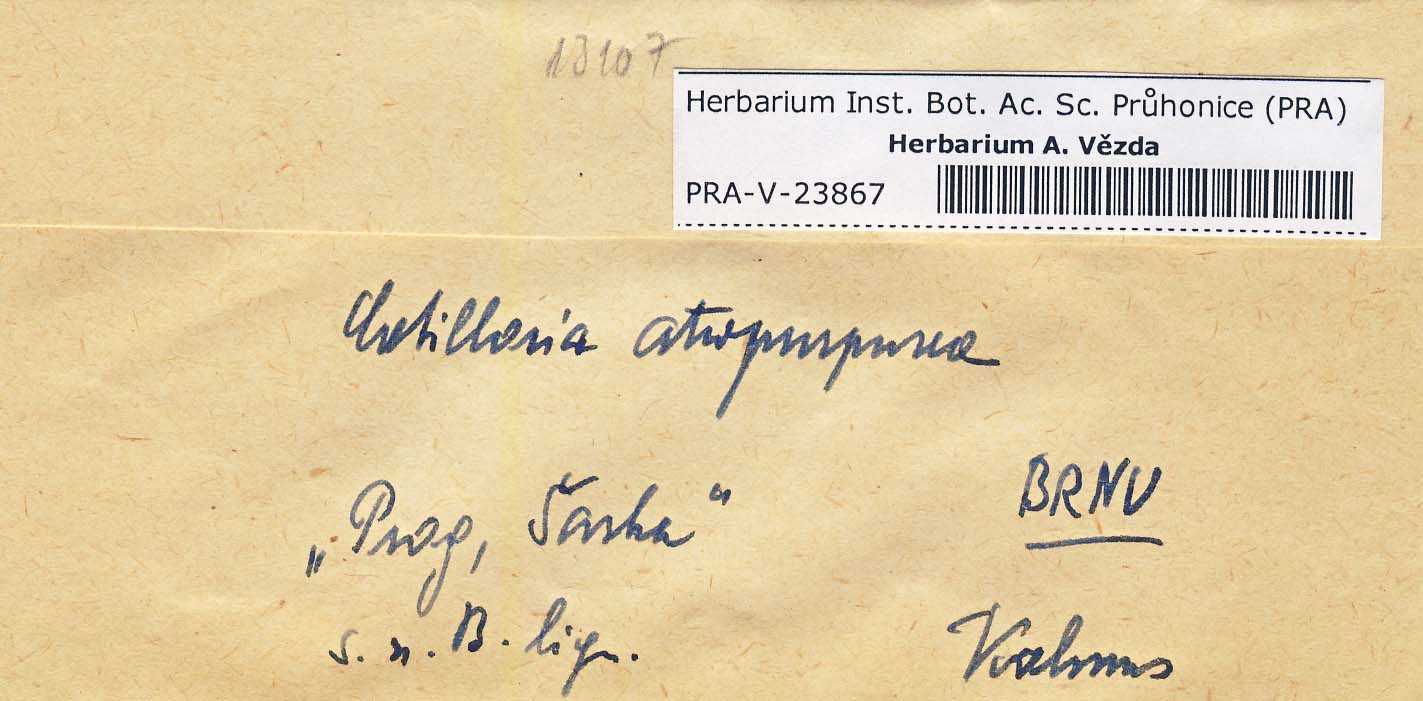 13107
Herbarium Inst. Bot. Ac. Sc. Průhonice (PRA)
Herbarium A. Vězda
PRA-V-23867
Catillaria atropurpurea
„Prag, Šarka“
BRNU
s. n. B. lign.
Kalmus